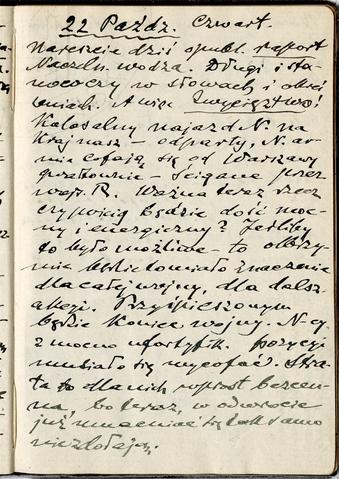 22 Paźdz. Czwart.
Nareszcie dziś opubl. raport
Naczeln. wodza. Długi i sta-
nowczy w słowach i okreś
leniach. A więc Zwycięztwo!
Kolosalny najazd N. na
Kraj nasz – odparty, N. ar
mie cofają się od Warszawy
gwałtownie – ścigane przez
wojs. R. Ważna teraz rzecz
czy pościg będzie dość moc-
ny i energiczny? Jeśliby
to było możliwe – to olbrzy-
mie będzie to miało znaczenie
dla całej wojny, dla dalsz.
akcyi. Przyśpieszonym
będzie koniec wojny. N-cy
z mocno ufortyfik. pozycyi
musiało się wycofać. Stra-
ta to dla nich wprost bezcen-
na, bo teraz, w odwrocie
już umacniać się tak samo
nie zdołają.